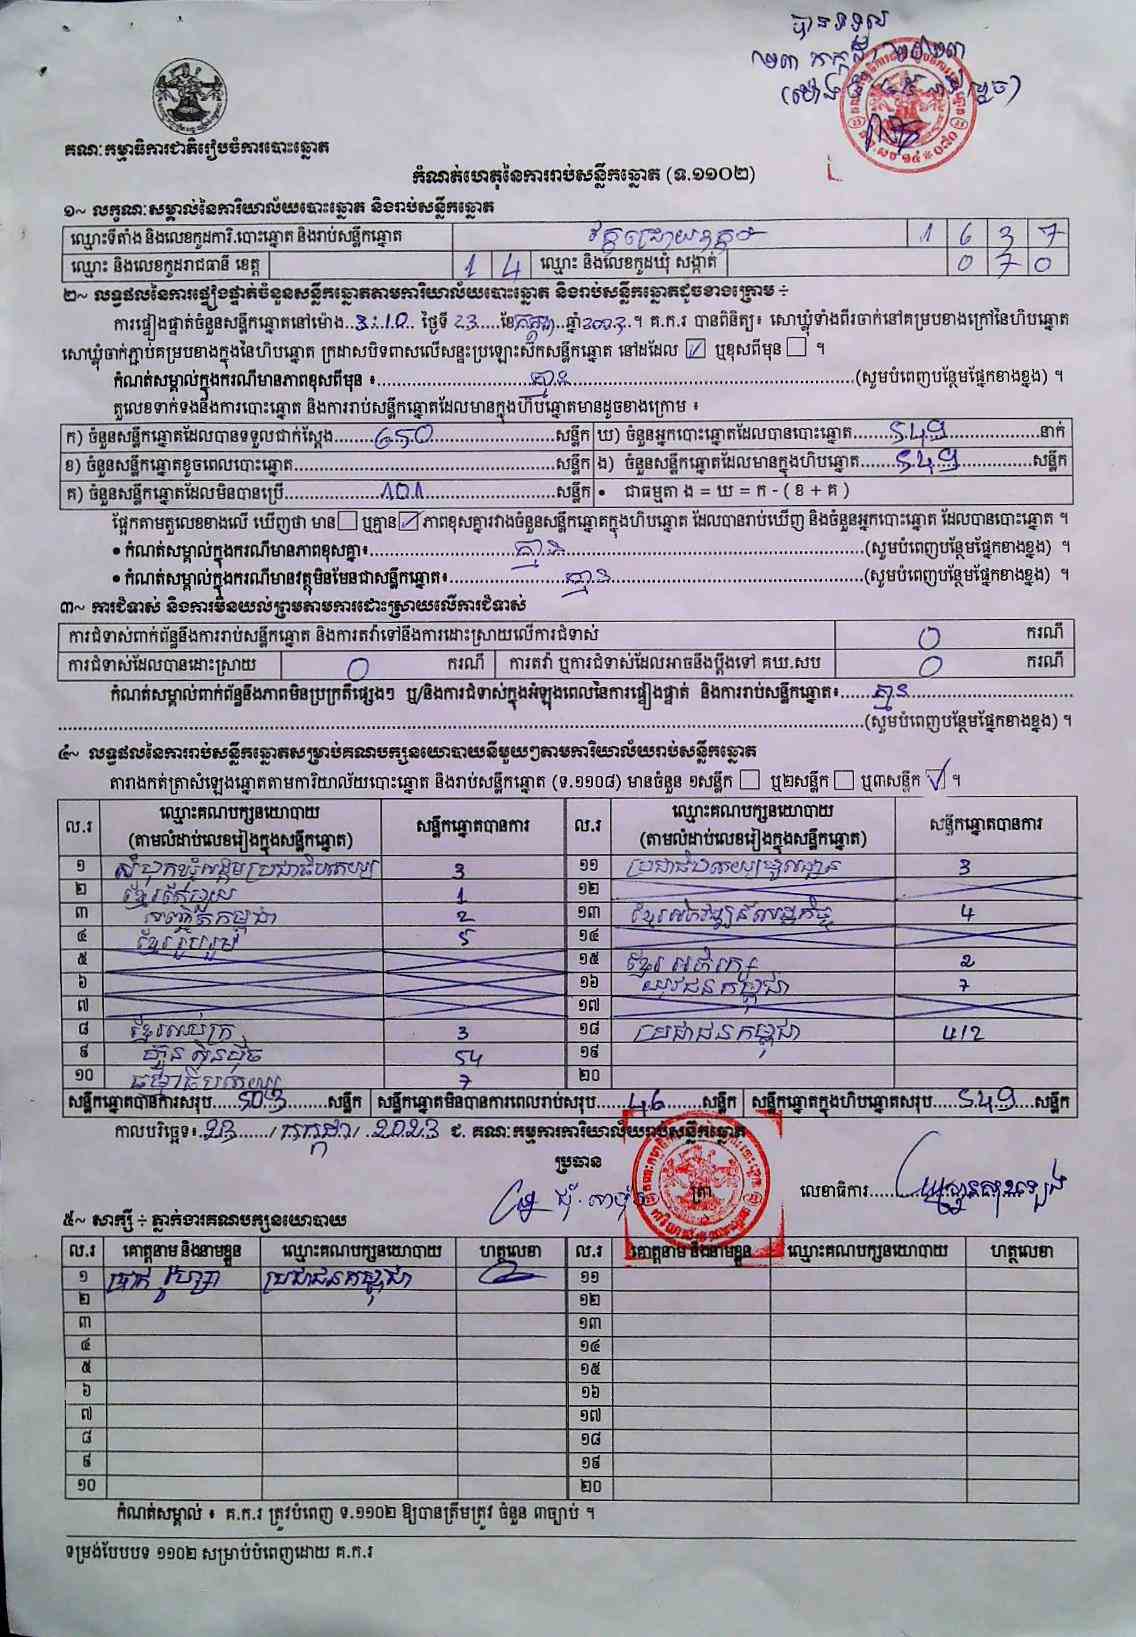 បានទទួល
គណៈកម្មាធិការជាតិរៀបចំការបោះឆ្នោត
កំណត់ហេតុនៃការរាប់សន្លឹកឆ្នោត (ទ.១១០២)
១~ លក្ខណៈសម្គាល់នៃការិយាល័យបោះឆ្នោត និងរាប់សន្លឹកឆ្នោត
ឈ្មោះទីតាំង និងលេខកូដការិ.បោះឆ្នោត និងរាប់សន្លឹកឆ្នោត 1 6 3 7
ឈ្មោះ និងលេខកូដរាជធានី ខេត្ត 1 4 ឈ្មោះ និងលេខកូដឃុំ សង្កាត់ 0 7 0
២~ លទ្ធផលនៃការផ្ទៀងផ្ទាត់ចំនួនសន្លឹកឆ្នោតតាមការិយាល័យបោះឆ្នោត និងរាប់សន្លឹកឆ្នោតដូចខាងក្រោម ÷
ការផ្ទៀងផ្ទាត់ចំនួនសន្លឹកឆ្នោតនៅម៉ោង..3:10.. ថ្ងៃទី 23.....ខែកក្កដា..ឆ្នាំ2023.។ គ.ក.រ បានពិនិត្យ៖ សោឃ្លុំទាំងពីរចាក់នៅគម្របខាងក្រៅនៃហិបឆ្នោត
សោឃ្លុំចាក់ភ្ជាប់គម្របខាងក្នុងនៃហិបឆ្នោត ក្រដាសបិទពាសលើសន្ទះប្រឡោះស៊ីកសន្លឹកឆ្នោត នៅដដែល ☑ ឬខុសពីមុន ☐ ។
កំណត់សម្គាល់ក្នុងករណីមានភាពខុសពីមុន ៖ គ្មាន (សូមបំពេញបន្ថែមផ្នែកខាងខ្នង) ។
តួលេខទាក់ទងនឹងការបោះឆ្នោត និងការរាប់សន្លឹកឆ្នោតដែលមានក្នុងហិបឆ្នោតមានដូចខាងក្រោម ៖
ក) ចំនួនសន្លឹកឆ្នោតដែលបានទទួលជាក់ស្តែង........650........សន្លឹក ឃ) ចំនួនអ្នកបោះឆ្នោតដែលបានបោះឆ្នោត........549........នាក់
ខ) ចំនួនសន្លឹកឆ្នោតខូចពេលបោះឆ្នោត........សន្លឹក ង) ចំនួនសន្លឹកឆ្នោតដែលមានក្នុងហិបឆ្នោត........549........សន្លឹក
គ) ចំនួនសន្លឹកឆ្នោតដែលមិនបានប្រើ........101........សន្លឹក • ជាធម្មតា ង = ឃ = ក - ( ខ + គ )
ផ្អែកតាមតួលេខខាងលើ ឃើញថា មាន ☐ ឬគ្មាន ☑ ភាពខុសគ្នារវាងចំនួនសន្លឹកឆ្នោតក្នុងហិបឆ្នោត ដែលបានរាប់ឃើញ និងចំនួនអ្នកបោះឆ្នោត ដែលបានបោះឆ្នោត ។
• កំណត់សម្គាល់ក្នុងករណីមានភាពខុសគ្នា៖ គ្មាន (សូមបំពេញបន្ថែមផ្នែកខាងខ្នង) ។
• កំណត់សម្គាល់ក្នុងករណីមានវត្ថុមិនមែនជាសន្លឹកឆ្នោត៖ គ្មាន (សូមបំពេញបន្ថែមផ្នែកខាងខ្នង) ។
៣~ ការជំទាស់ និងការមិនយល់ព្រមតាមការដោះស្រាយលើការជំទាស់
ការជំទាស់ពាក់ព័ន្ធនឹងការរាប់សន្លឹកឆ្នោត និងការតវ៉ាទៅនឹងការដោះស្រាយលើការជំទាស់ 0 ករណី
ការជំទាស់ដែលបានដោះស្រាយ 0 ករណី ការតវ៉ា ឬការជំទាស់ដែលអាចនឹងប្តឹងទៅ គឃ.សប 0 ករណី
កំណត់សម្គាល់ពាក់ព័ន្ធនឹងភាពមិនប្រក្រតីផ្សេងៗ ឬ/និងការជំទាស់ក្នុងអំឡុងពេលនៃការផ្ទៀងផ្ទាត់ និងការរាប់សន្លឹកឆ្នោត៖ គ្មាន
(សូមបំពេញបន្ថែមផ្នែកខាងខ្នង) ។
៤~ លទ្ធផលនៃការរាប់សន្លឹកឆ្នោតសម្រាប់គណបក្សនយោបាយនីមួយៗតាមការិយាល័យរាប់សន្លឹកឆ្នោត
តារាងកត់ត្រាសំឡេងឆ្នោតតាមការិយាល័យបោះឆ្នោត និងរាប់សន្លឹកឆ្នោត (ទ.១១០៨) មានចំនួន ១សន្លឹក ☐ ឬ២សន្លឹក ☐ ឬ៣សន្លឹក ☑ ។
ល.រ ឈ្មោះគណបក្សនយោបាយ (តាមលំដាប់លេខរៀងក្នុងសន្លឹកឆ្នោត) សន្លឹកឆ្នោតបានការ ល.រ ឈ្មោះគណបក្សនយោបាយ (តាមលំដាប់លេខរៀងក្នុងសន្លឹកឆ្នោត) សន្លឹកឆ្នោតបានការ
១ សំបុកឃ្មុំសង្គមប្រជាធិបតេយ្យ 3 ១១ 3
២ 1 ១២
៣ ពន្លឺកម្ពុជា 2 ១៣ ខ្មែរអភិវឌ្ឍន៍សេដ្ឋកិច្ច 4
៤ ខ្មែររួបរួម 5 ១៤
៥ ១៥ ខ្មែរអភិរក្ស 2
៦ ១៦ យុវជនកម្ពុជា 7
៧ ១៧
៨ 3 ១៨ ប្រជាជនកម្ពុជា 412
៩ ហ៊្វុនស៊ិនប៉ិច 54 ១៩
១០ ធម្មាធិបតេយ្យ 7 ២០
សន្លឹកឆ្នោតបានការសរុប......503........សន្លឹក សន្លឹកឆ្នោតមិនបានការពេលរាប់សរុប......46.......សន្លឹក សន្លឹកឆ្នោតក្នុងហិបឆ្នោតសរុប......549....សន្លឹក
កាលបរិច្ឆេទ៖..23....../ កក្កដា / .2023 ជ. គណៈកម្មការការិយាល័យរាប់សន្លឹកឆ្នោត
ប្រធាន
លេខាធិការ
៥~ សាក្សី ÷ ភ្នាក់ងារគណបក្សនយោបាយ
ល.រ គោត្តនាម និងនាមខ្លួន ឈ្មោះគណបក្សនយោបាយ ហត្ថលេខា ល.រ គោត្តនាម និងនាមខ្លួន ឈ្មោះគណបក្សនយោបាយ ហត្ថលេខា
១ ប្រជាជនកម្ពុជា ១១
២ ១២
៣ ១៣
៤ ១៤
៥ ១៥
៦ ១៦
៧ ១៧
៨ ១៨
៩ ១៩
១០ ២០
កំណត់សម្គាល់ ៖ គ.ក.រ ត្រូវបំពេញ ទ.១១០២ ឱ្យបានត្រឹមត្រូវ ចំនួន ៣ច្បាប់ ។
ទម្រង់បែបបទ ១១០២ សម្រាប់បំពេញដោយ គ.ក.រ